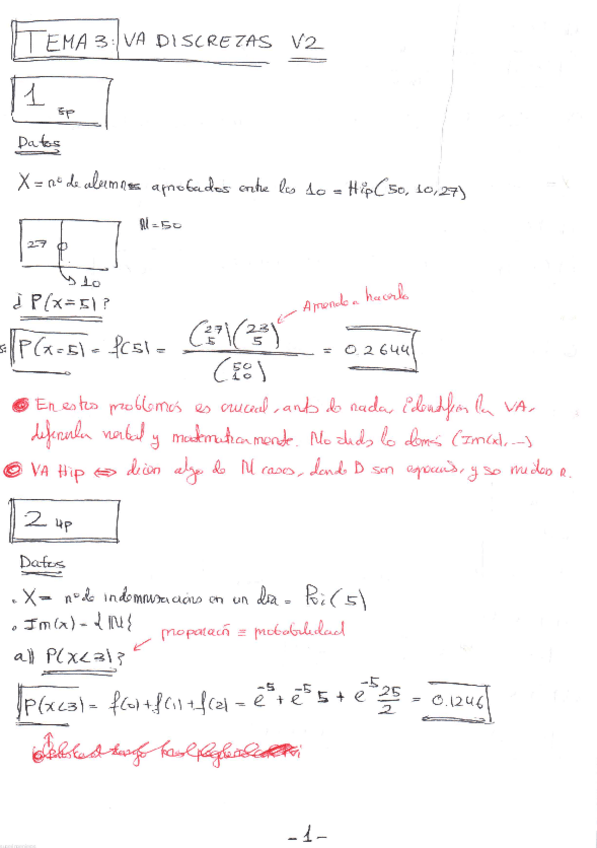 TEMA 3: VA DISCRETAS V2
1 5p
Datos
X = nº de alumnos aprobados entre los 10 = Hip(50, 10, 27)
N = 50
27
10
¿P(X=5)?
Aprende a hacerlo
P(X=5) = f(5) = (27 5)(23 5) / (50 10) = 0.2644
En estos problemas es crucial, antes de nada, identificar la VA,
definirla verbal y matemáticamente. No lo demás (Im(x), ...)
VA Hip ⇔ dicen algo de N casos, donde D son especiales, y se miden n.
2 4p
Datos
. X = nº de indemnizaciones en un día = Poi(5)
. Im(x) = {N}
proporción ≡ probabilidad
a) ¿P(X<3)?
P(X<3) = f(0)+f(1)+f(2) = e^-5 + e^-5 5 + e^-5 25/2 = 0.1246
-1-